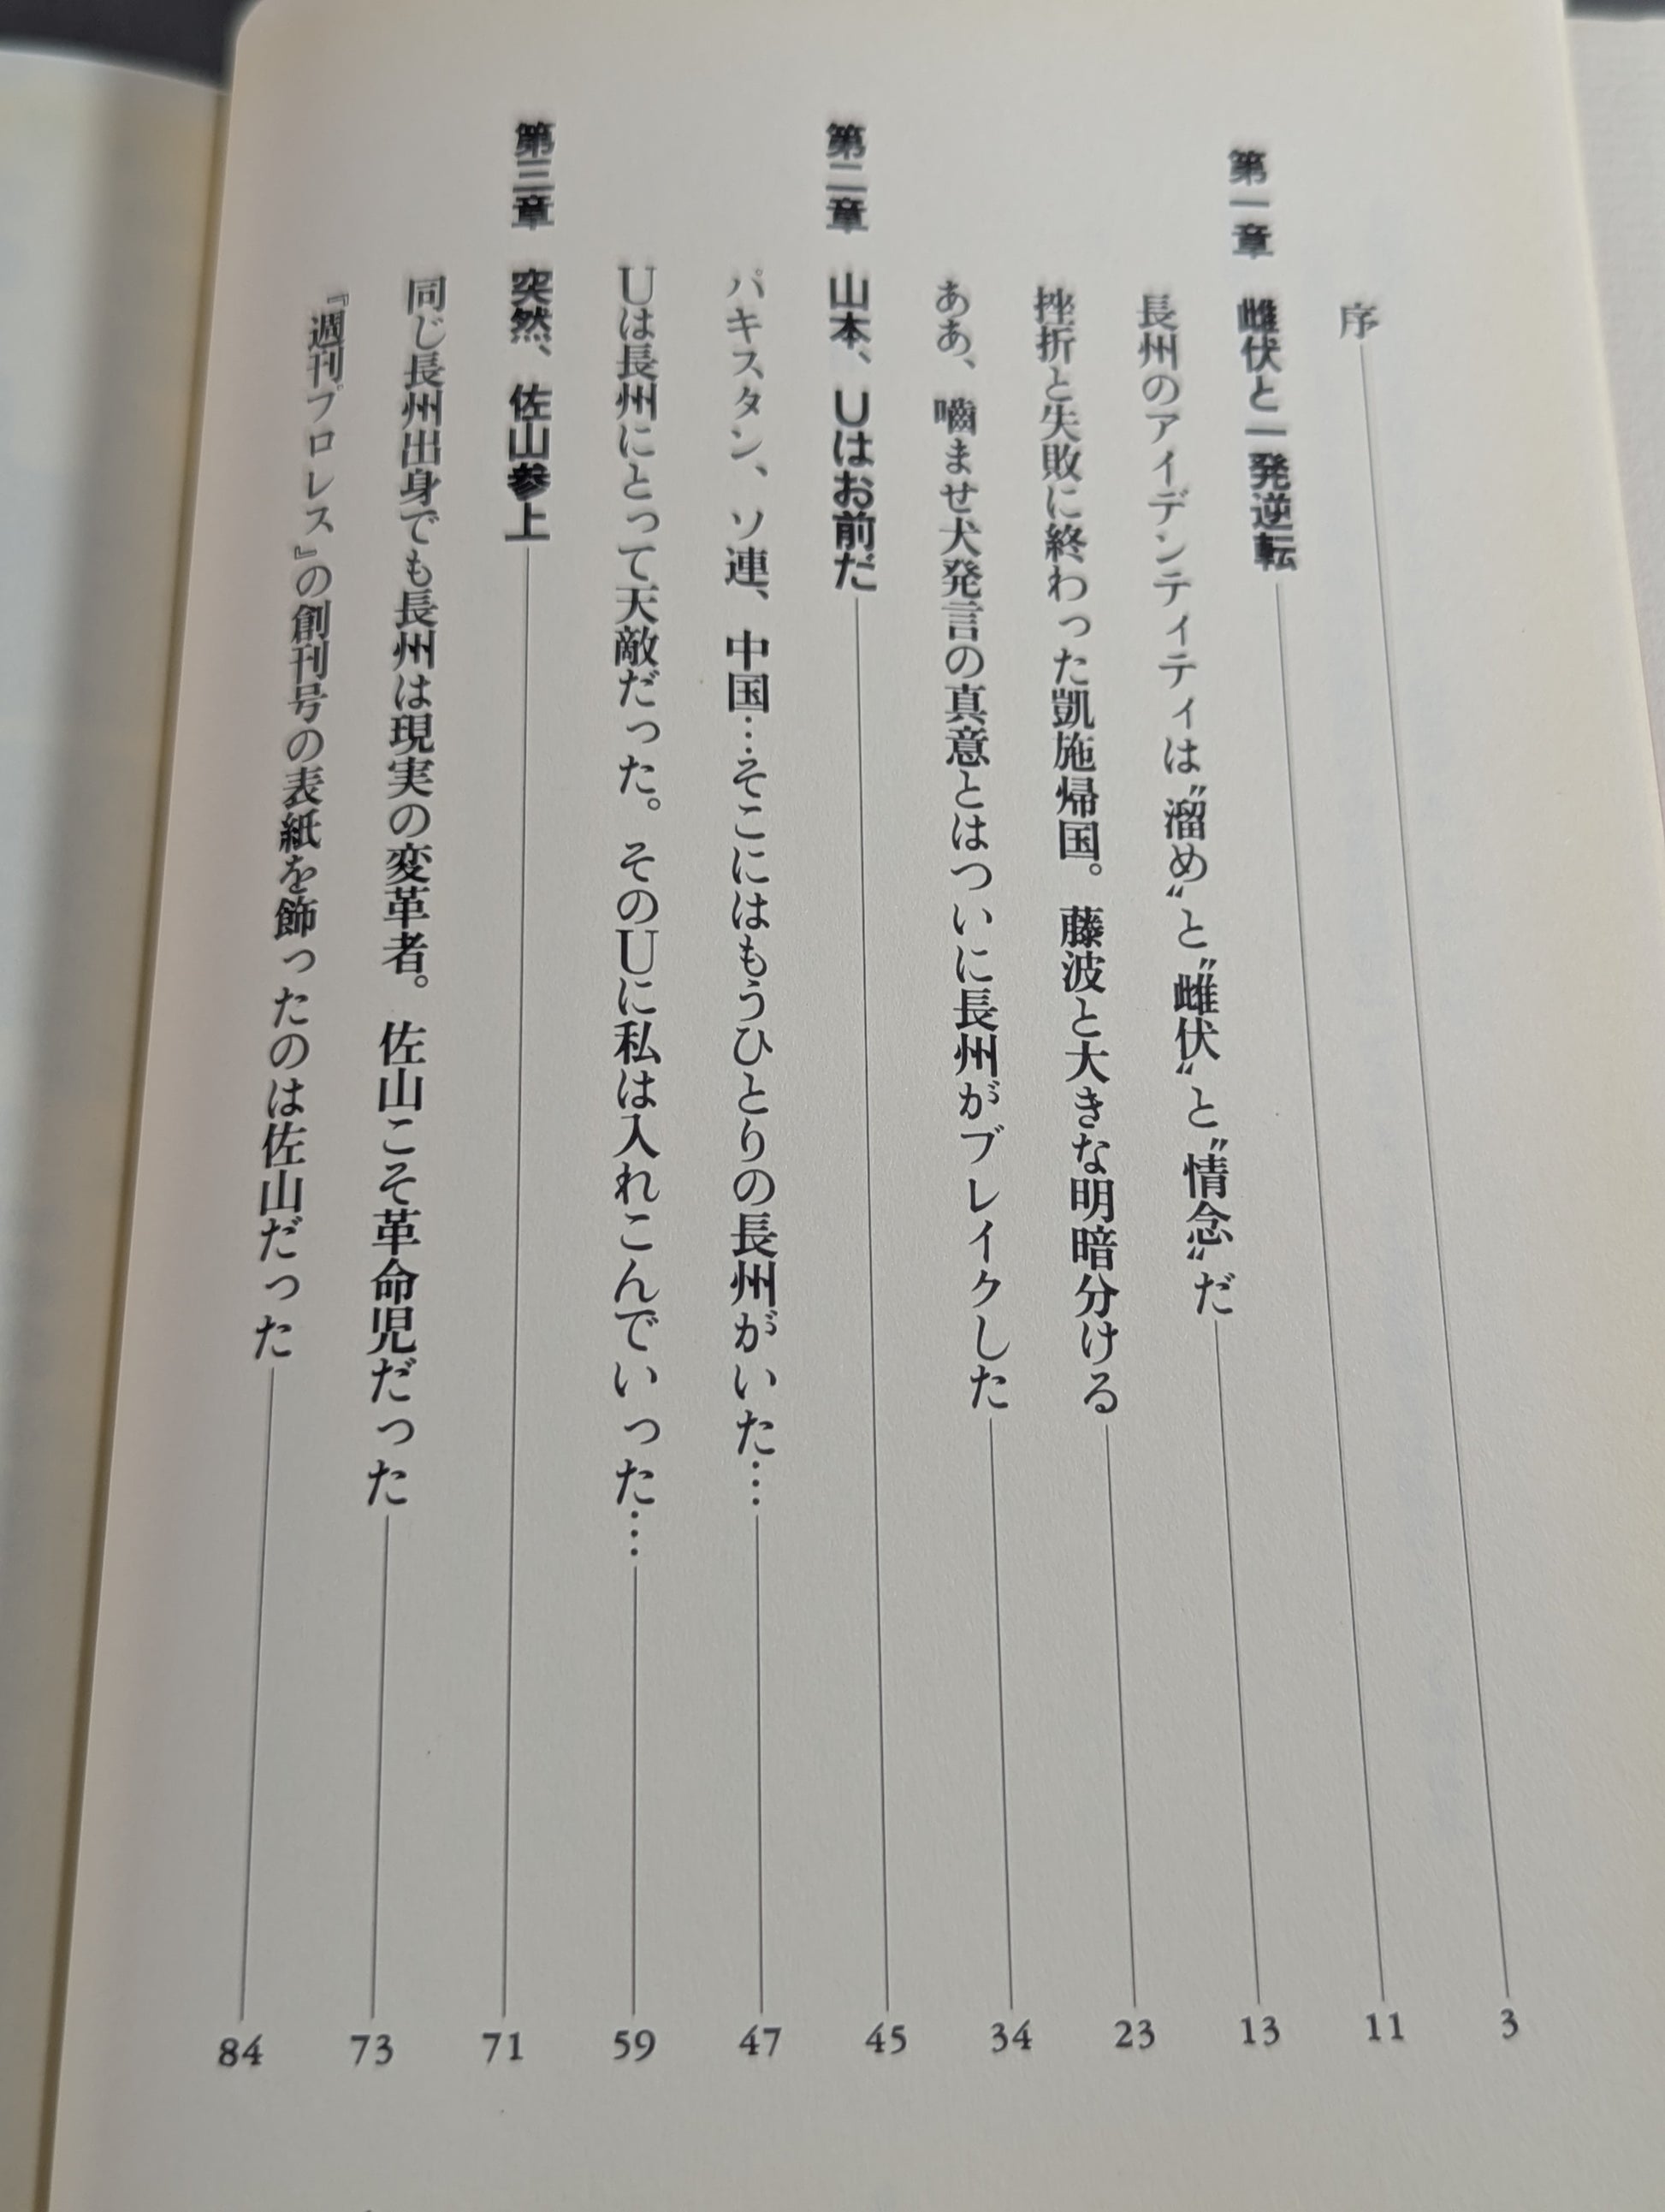 序 3
第一章 雌伏と一発逆転 11
長州のアイデンティティは〝溜め〟と〝雌伏〟と〝情念〟だ 13
挫折と失敗に終わった凱施帰国。藤波と大きな明暗分ける 23
ああ、嚙ませ犬発言の真意とはついに長州がブレイクした 34
第二章 山本、Uはお前だ 45
パキスタン、ソ連、中国…そこにはもうひとりの長州がいた… 47
Uは長州にとって天敵だった。そのUに私は入れこんでいった… 59
第三章 突然、佐山参上 71
同じ長州出身でも長州は現実の変革者。佐山こそ革命児だった 73
『週刊プロレス』の創刊号の表紙を飾ったのは佐山だった 84